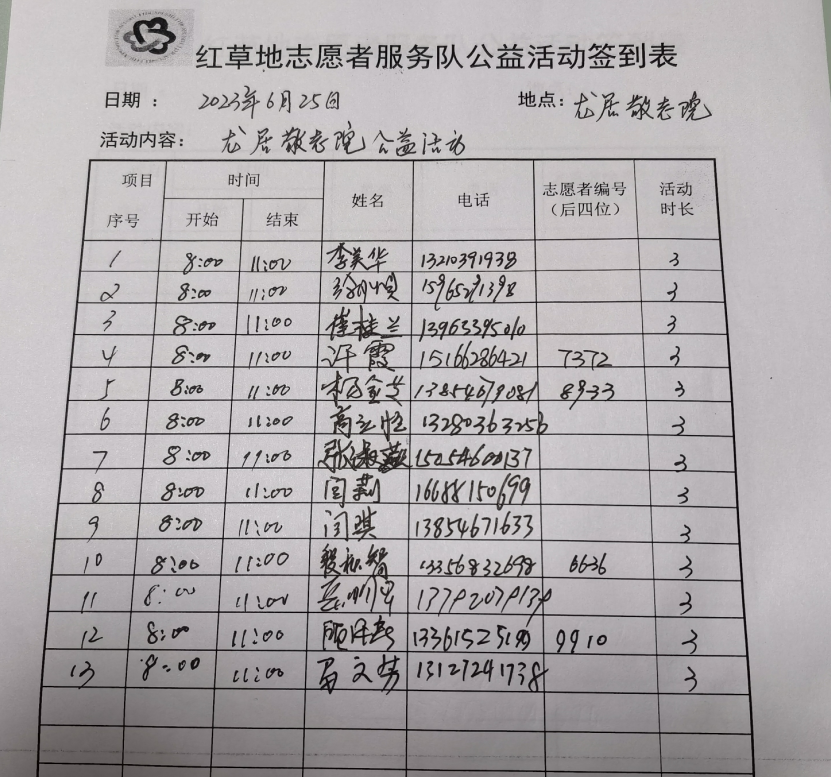 红草地志愿者服务队公益活动签到表
日期： 2023年6月25日 地点：尤居敬老院
活动内容： 尤居敬老院公益活动
项目 时间 姓名 电话 志愿者编号（后四位） 活动时长
序号 开始 结束
1 8:00 11:00 李美华 13210391938 3
2 8:00 11:00 15965291398 3
3 8:00 11:00 崔桂兰 13963395010 3
4 8:00 11:00 许霞 15166286421 7372 3
5 8:00 11:00 杨金芝 13854679081 8933 3
6 8:00 11:00 高立恒 13280363256 3
7 8:00 11:00 张淑燕 15254600137 3
8 8:00 11:00 闫莉 16688150699 3
9 8:00 11:00 闫琪 13854671633 3
10 8:00 11:00 13356832698 6636 3
11 8:00 11:00 3
12 8:00 11:00 13361525199 9910 3
13 8:00 11:00 马文芳 13127241738 3